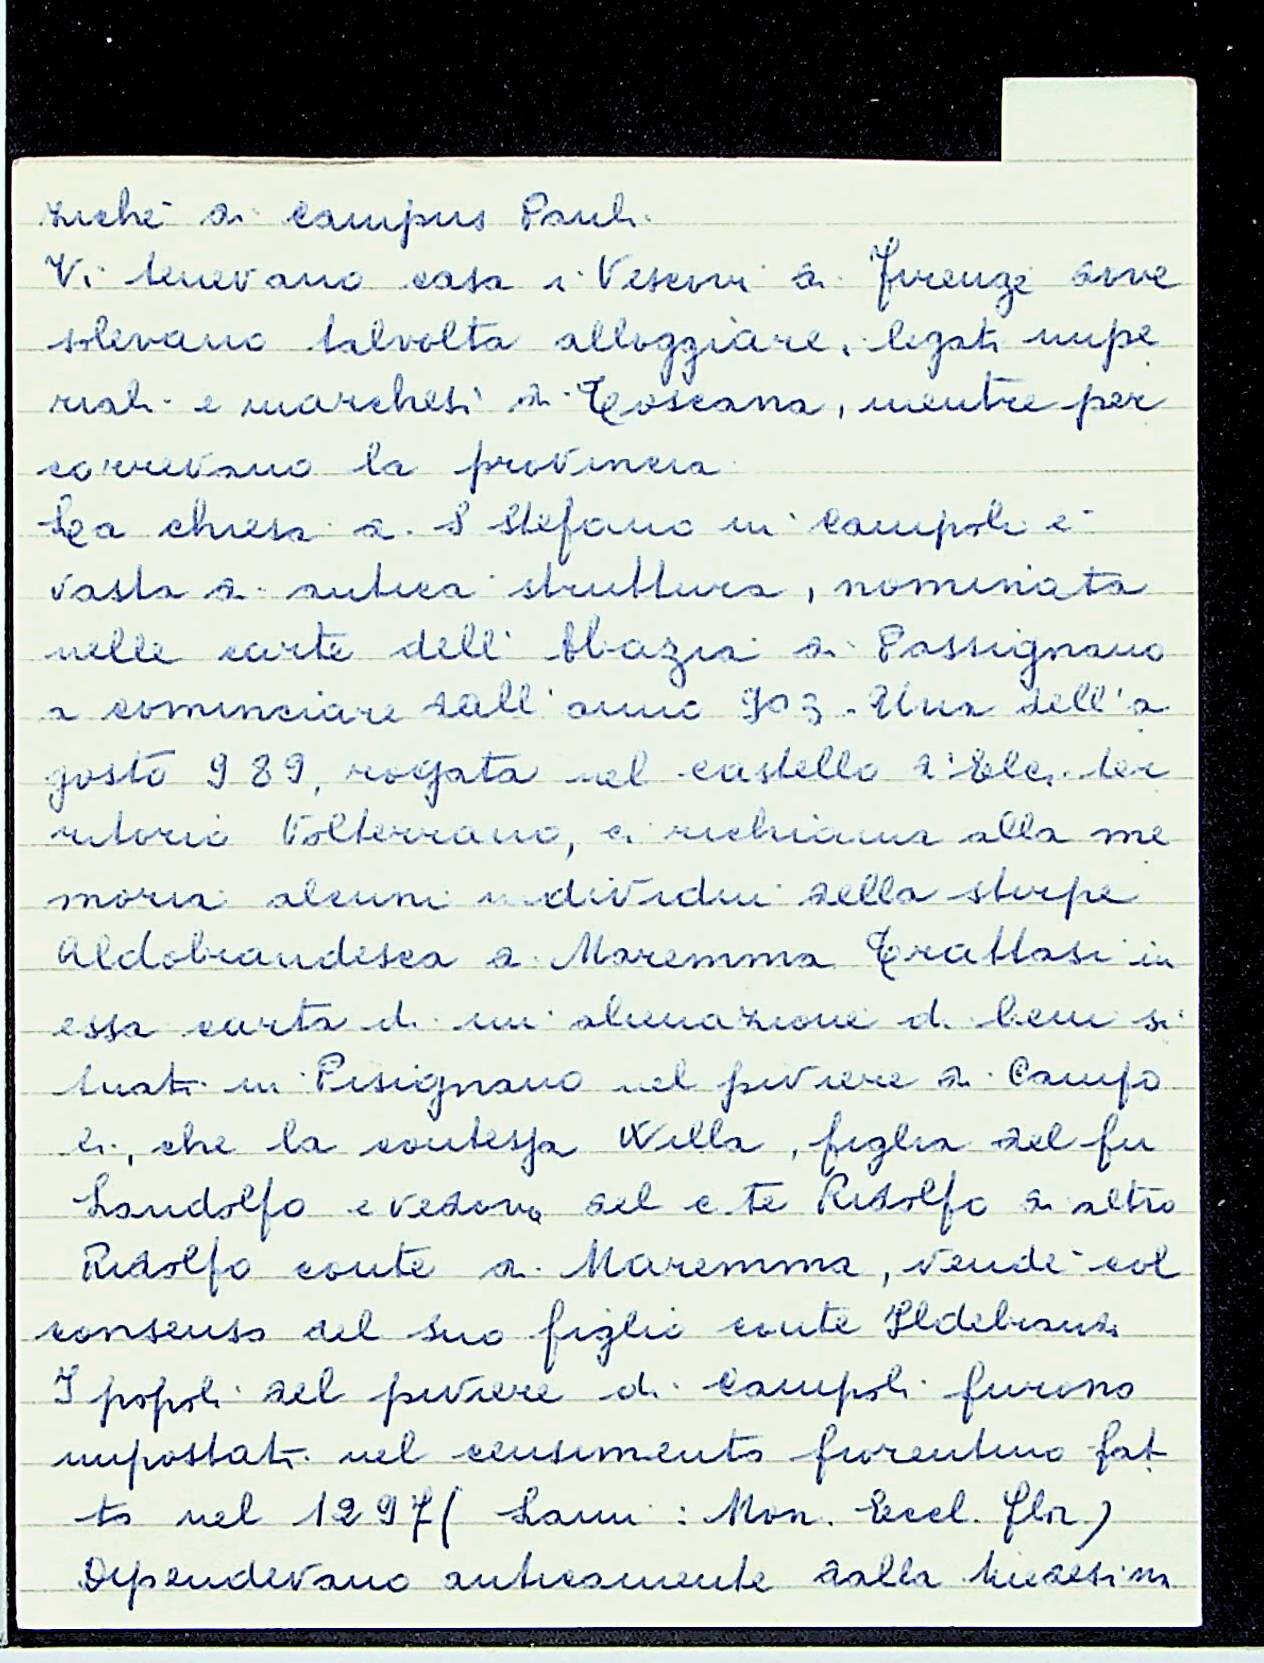 ziché di Campus Pauli.
Vi tenevano casa i Vescovi di Firenze dove
solevano talvolta alloggiare, legati impe
riali e marchesi di Toscana, mentre per
correvano la provincia
La chiesa di S Stefano in Campoli è
vasta di antica struttura, nominata
nelle carte dell'Abazia di Passignano
a cominciare dall'anno 903. Una dell'a
gosto 989, rogata nel castello d'Elci ter
ritorio Volterrano, ci richiama alla me
moria alcuni individui della stirpe
Aldobrandesca di Maremma Trattasi in
essa carta di un alienazione di beni si
tuati in Pisignano nel piviere di Campo
li, che la contessa Willa, figlia del fu
Landolfo e vedova del c.te Ridolfo di altro
Ridolfo conte di Maremma, vendé col
consenso del suo figlio conte Ildebrando
I popoli del piviere di Campoli furono
impostati nel censimento fiorentino fat
to nel 1297 ( Lami : Mon. Eccl. Flor.)
Dipendevano anticamente dalla medesima